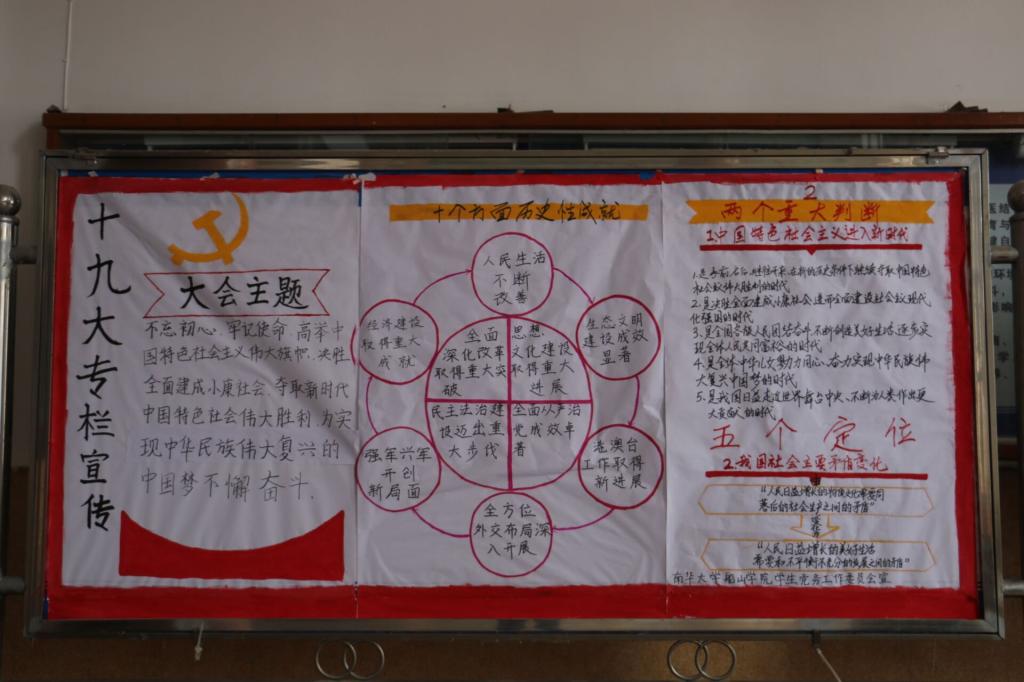 十九大专栏宣传
大会主题
不忘初心、牢记使命,高举中
国特色社会主义伟大旗帜、决胜
全面建成小康社会、夺取新时代
中国特色社会伟大胜利,为实
现中华民族伟大复兴的
中国梦不懈奋斗.
十个方面历史性成就
人民生活
不断
改善
经济建设
取得重大
成就
生态文明
建设成效
显著
全面
深化改革
取得重大突
破
思想、
文化建设
取得重大
进展
民主法治建
设迈出重
大步伐
全面从严治
党成效卓
著
强军兴军
开创
新局面
港澳台
工作取得
新进展
全方位
外交布局深
入开展
2
两个重大判断
1.中国特色社会主义进入新时代
1.是承前启后、继往开来、在新的历史条件下继续夺取中国特色
社会主义伟大胜利的时代
2.是决胜全面建成小康社会、进而全面建设社会主义现代
化强国的时代
3.是全国各族人民团结奋斗、不断创造美好生活、逐步实
现全体人民共同富裕的时代
4.是全体中华儿女勠力同心、奋力实现中华民族伟
大复兴中国梦的时代
5.是我国日益走近世界舞台中央、不断为人类作出更
大贡献的时代
五个定位
2.我国社会主要矛盾变化
“人民日益增长的物质文化需要同
落后的社会生产之间的矛盾”
“人民日益增长的美好生活
需要和不平衡不充分的发展之间的矛盾”
南华大学船山学院学生党务工作委员会宣